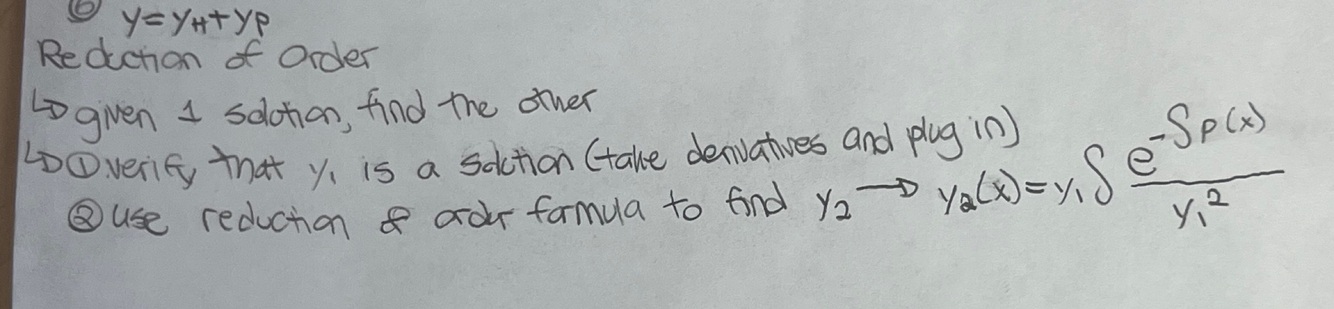 ⑥ y=yH+yP
Reduction of Order
↳ given 1 solution, find the other
↳ ① verify that y₁ is a solution (take derivatives and plug in)
② use reduction of order formula to find y₂ → y₂(x)=y₁∫ e^-∫p(x) / y₁²